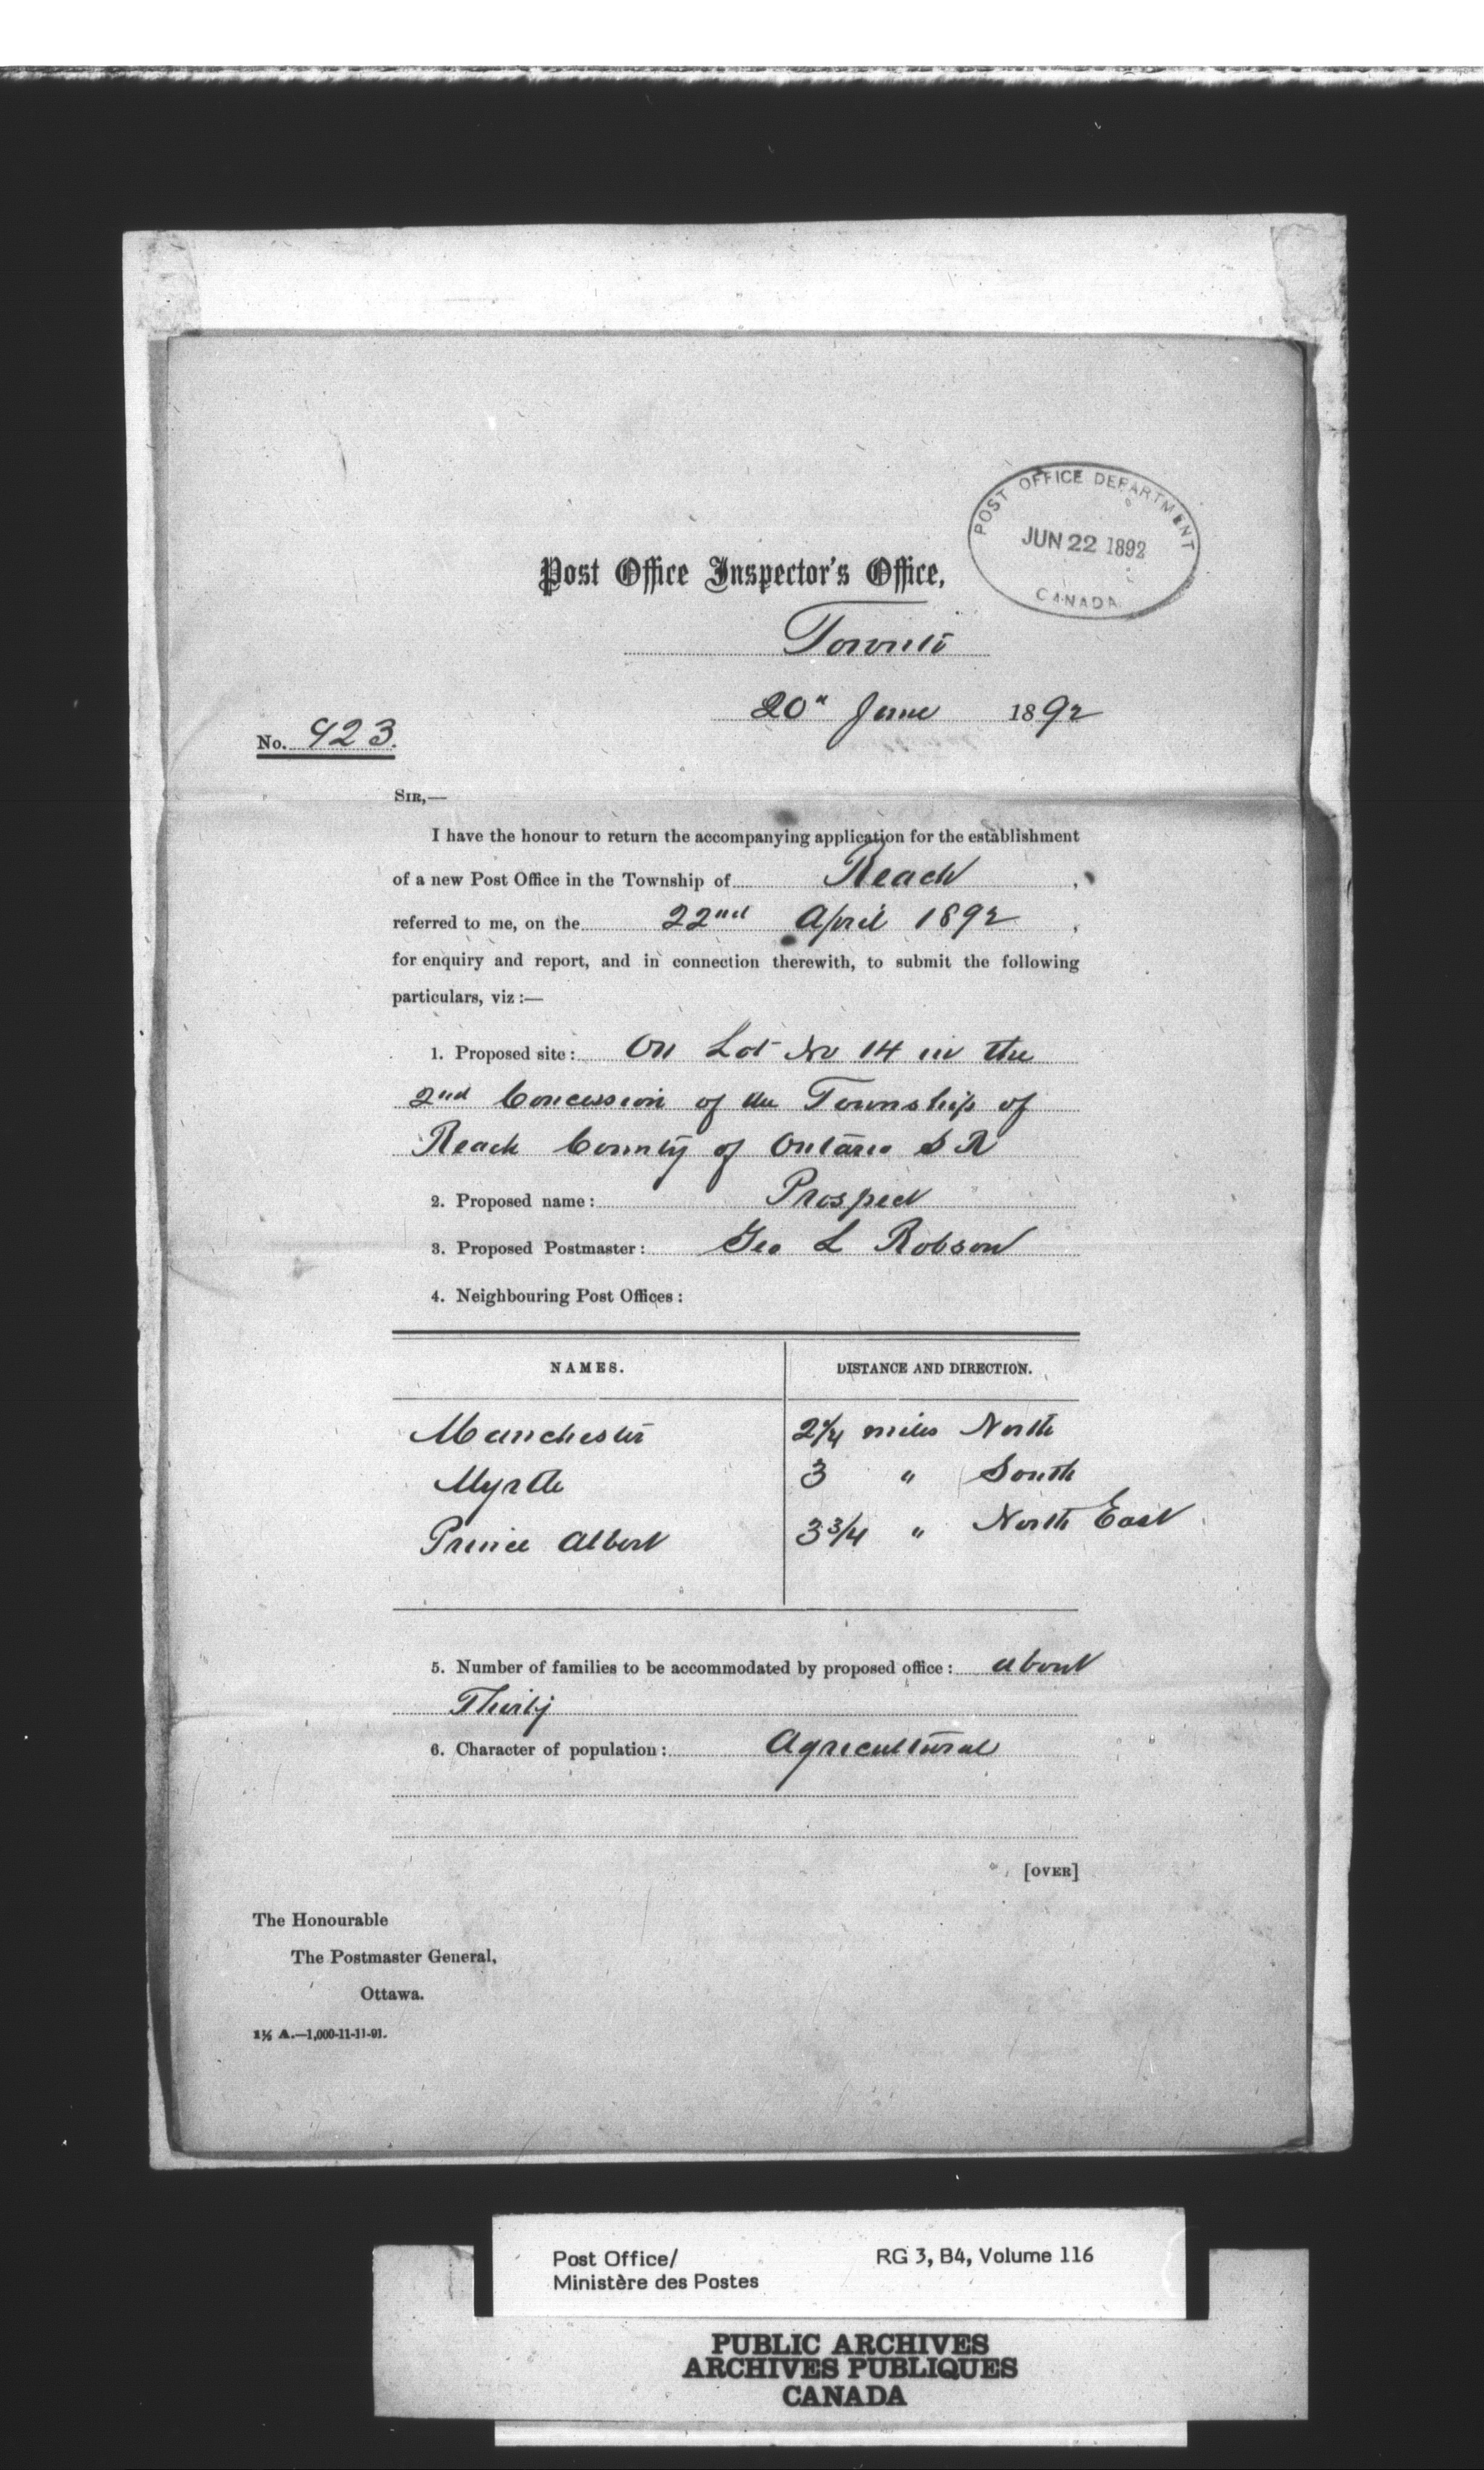 POST OFFICE DEPARTMENT
JUN 22 1892
CANADA
Post Office Inspector's Office,
Toronto
20" June 1892
No. 923.
SIR,—
I have the honour to return the accompanying application for the establishment
of a new Post Office in the Township of Reach ,
referred to me, on the 22nd April 1892 ,
for enquiry and report, and in connection therewith, to submit the following
particulars, viz :—
1. Proposed site : On Lot No 14 in the
2nd Concession of the Township of
Reach County of Ontario S R
2. Proposed name : Prospect
3. Proposed Postmaster : Geo L Robson
4. Neighbouring Post Offices :
NAMES. DISTANCE AND DIRECTION.
Manchester 2 1/4 miles North
Myrtle 3 " South
Prince Albert 3 3/4 " North East
5. Number of families to be accommodated by proposed office : about
Thirty
6. Character of population : Agricultural
[OVER]
The Honourable
The Postmaster General,
Ottawa.
1½ A.—1,000-11-11-91.
Post Office/ RG 3, B4, Volume 116
Ministère des Postes
PUBLIC ARCHIVES
ARCHIVES PUBLIQUES
CANADA